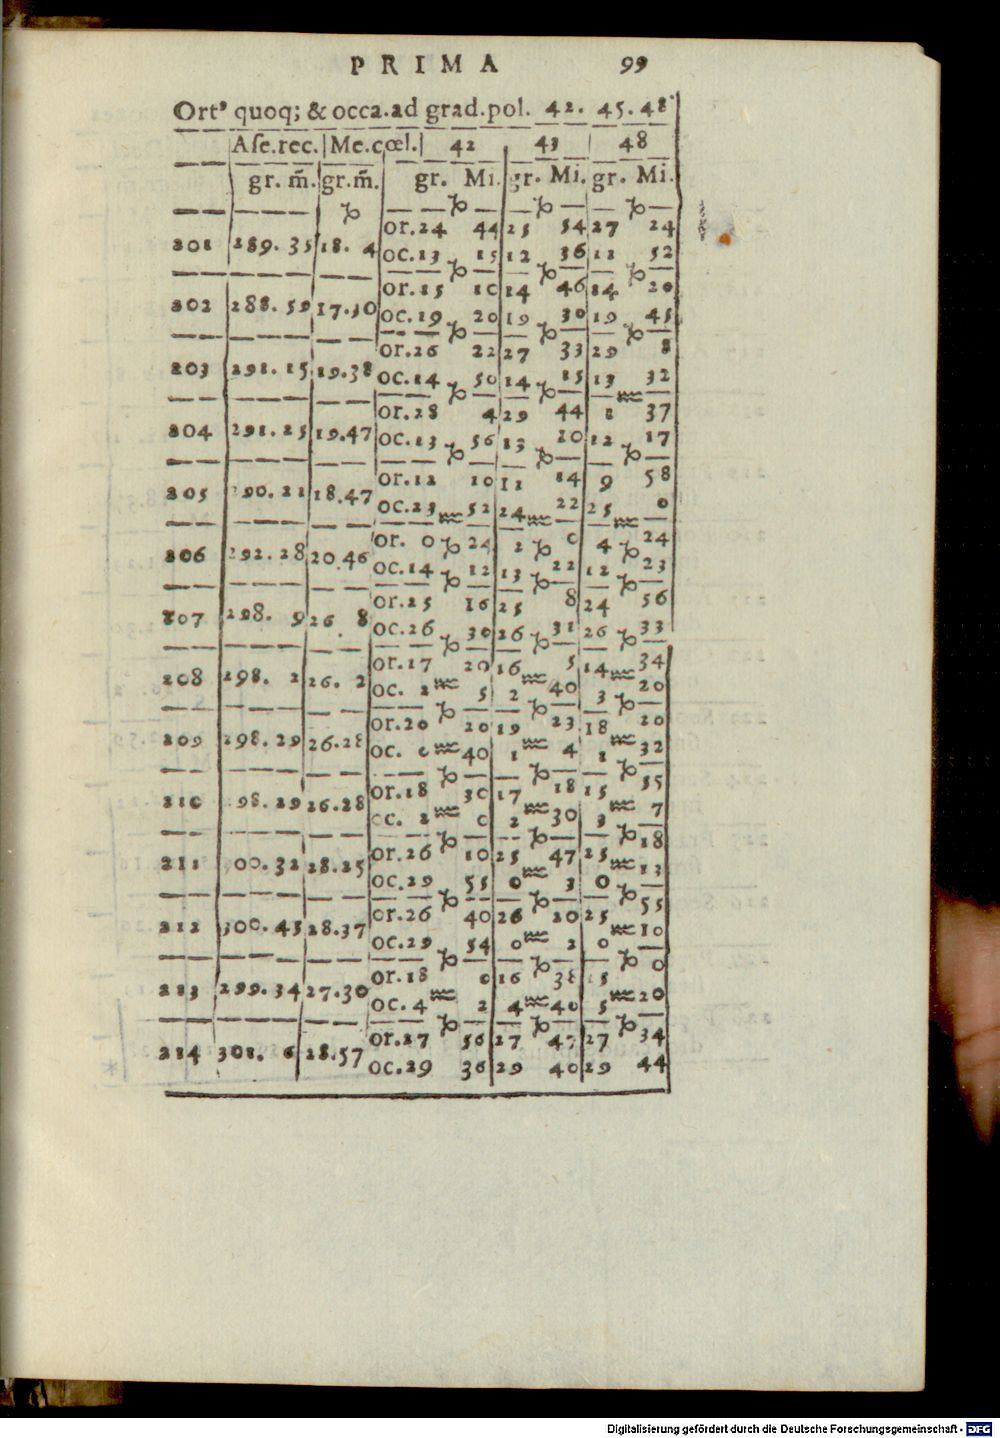 PRIMA 99
Ort⁹ quoq; & occa.ad grad.pol. 42. 45. 48
Ase.rec. Me.cœl. 42 43 48
gr. m̄. gr.m̄. gr. Mi. gr. Mi. gr. Mi.
♑ ♑ ♑ ♑
201 289. 35 18. 4 or.24 44 25 54 27 24
oc.13 15 12 36 11 52
♑ ♑ ♑
202 288. 59 17.30 or.15 10 14 46 14 20
oc.19 20 19 30 19 45
♑ ♑ ♑
203 291. 15 19.38 or.26 22 27 33 29 8
oc.14 50 14 15 13 32
♑ ♑ ♒
204 291. 25 19.47 or.28 4 29 44 1 37
oc.13 56 13 10 12 17
♑ ♑ ♑
205 90. 21 18.47 or.12 10 11 14 9 58
oc.23 52 24 22 25 0
♒ ♒ ♒
206 292. 28 20.46 or. 0 24 2 0 4 24
♑ ♑ ♑
oc.14 12 13 22 12 23
♑ ♑ ♑
207 298. 9 26 8 or.25 16 25 8 24 56
oc.26 30 26 31 26 33
♑ ♑ ♑
208 298. 2 26. 2 or.17 20 16 5 14 34
oc. 2 ♒ 5 2 ♒ 40 3 ♒ 20
♑ ♑ ♑
209 298. 29 26.28 or.20 20 19 23 18 20
oc. 0 ♒ 40 1 ♒ 4 1 ♒ 32
♑ ♑ ♑
210 98. 29 26.28 or.18 30 17 18 15 55
oc. 2 ♒ 0 2 ♒ 30 3 ♒ 7
♑ ♑ ♑
211 00. 32 28.25 or.26 10 25 47 25 18
oc.29 55 0 ♒ 3 0 ♒ 13
♑ ♑ ♑
212 300. 45 28.37 or.26 40 26 20 25 55
oc.29 54 0 ♒ 2 0 ♒ 10
♑ ♑ ♑
213 299. 34 27.30 or.18 0 16 38 15 0
oc. 4 ♒ 2 4 ♒ 40 5 ♒ 20
♑ ♑ ♑
214 301. 6 28.57 or.27 56 27 47 27 34
oc.29 36 29 40 29 44
Digitalisierung gefördert durch die Deutsche Forschungsgemeinschaft - DFG